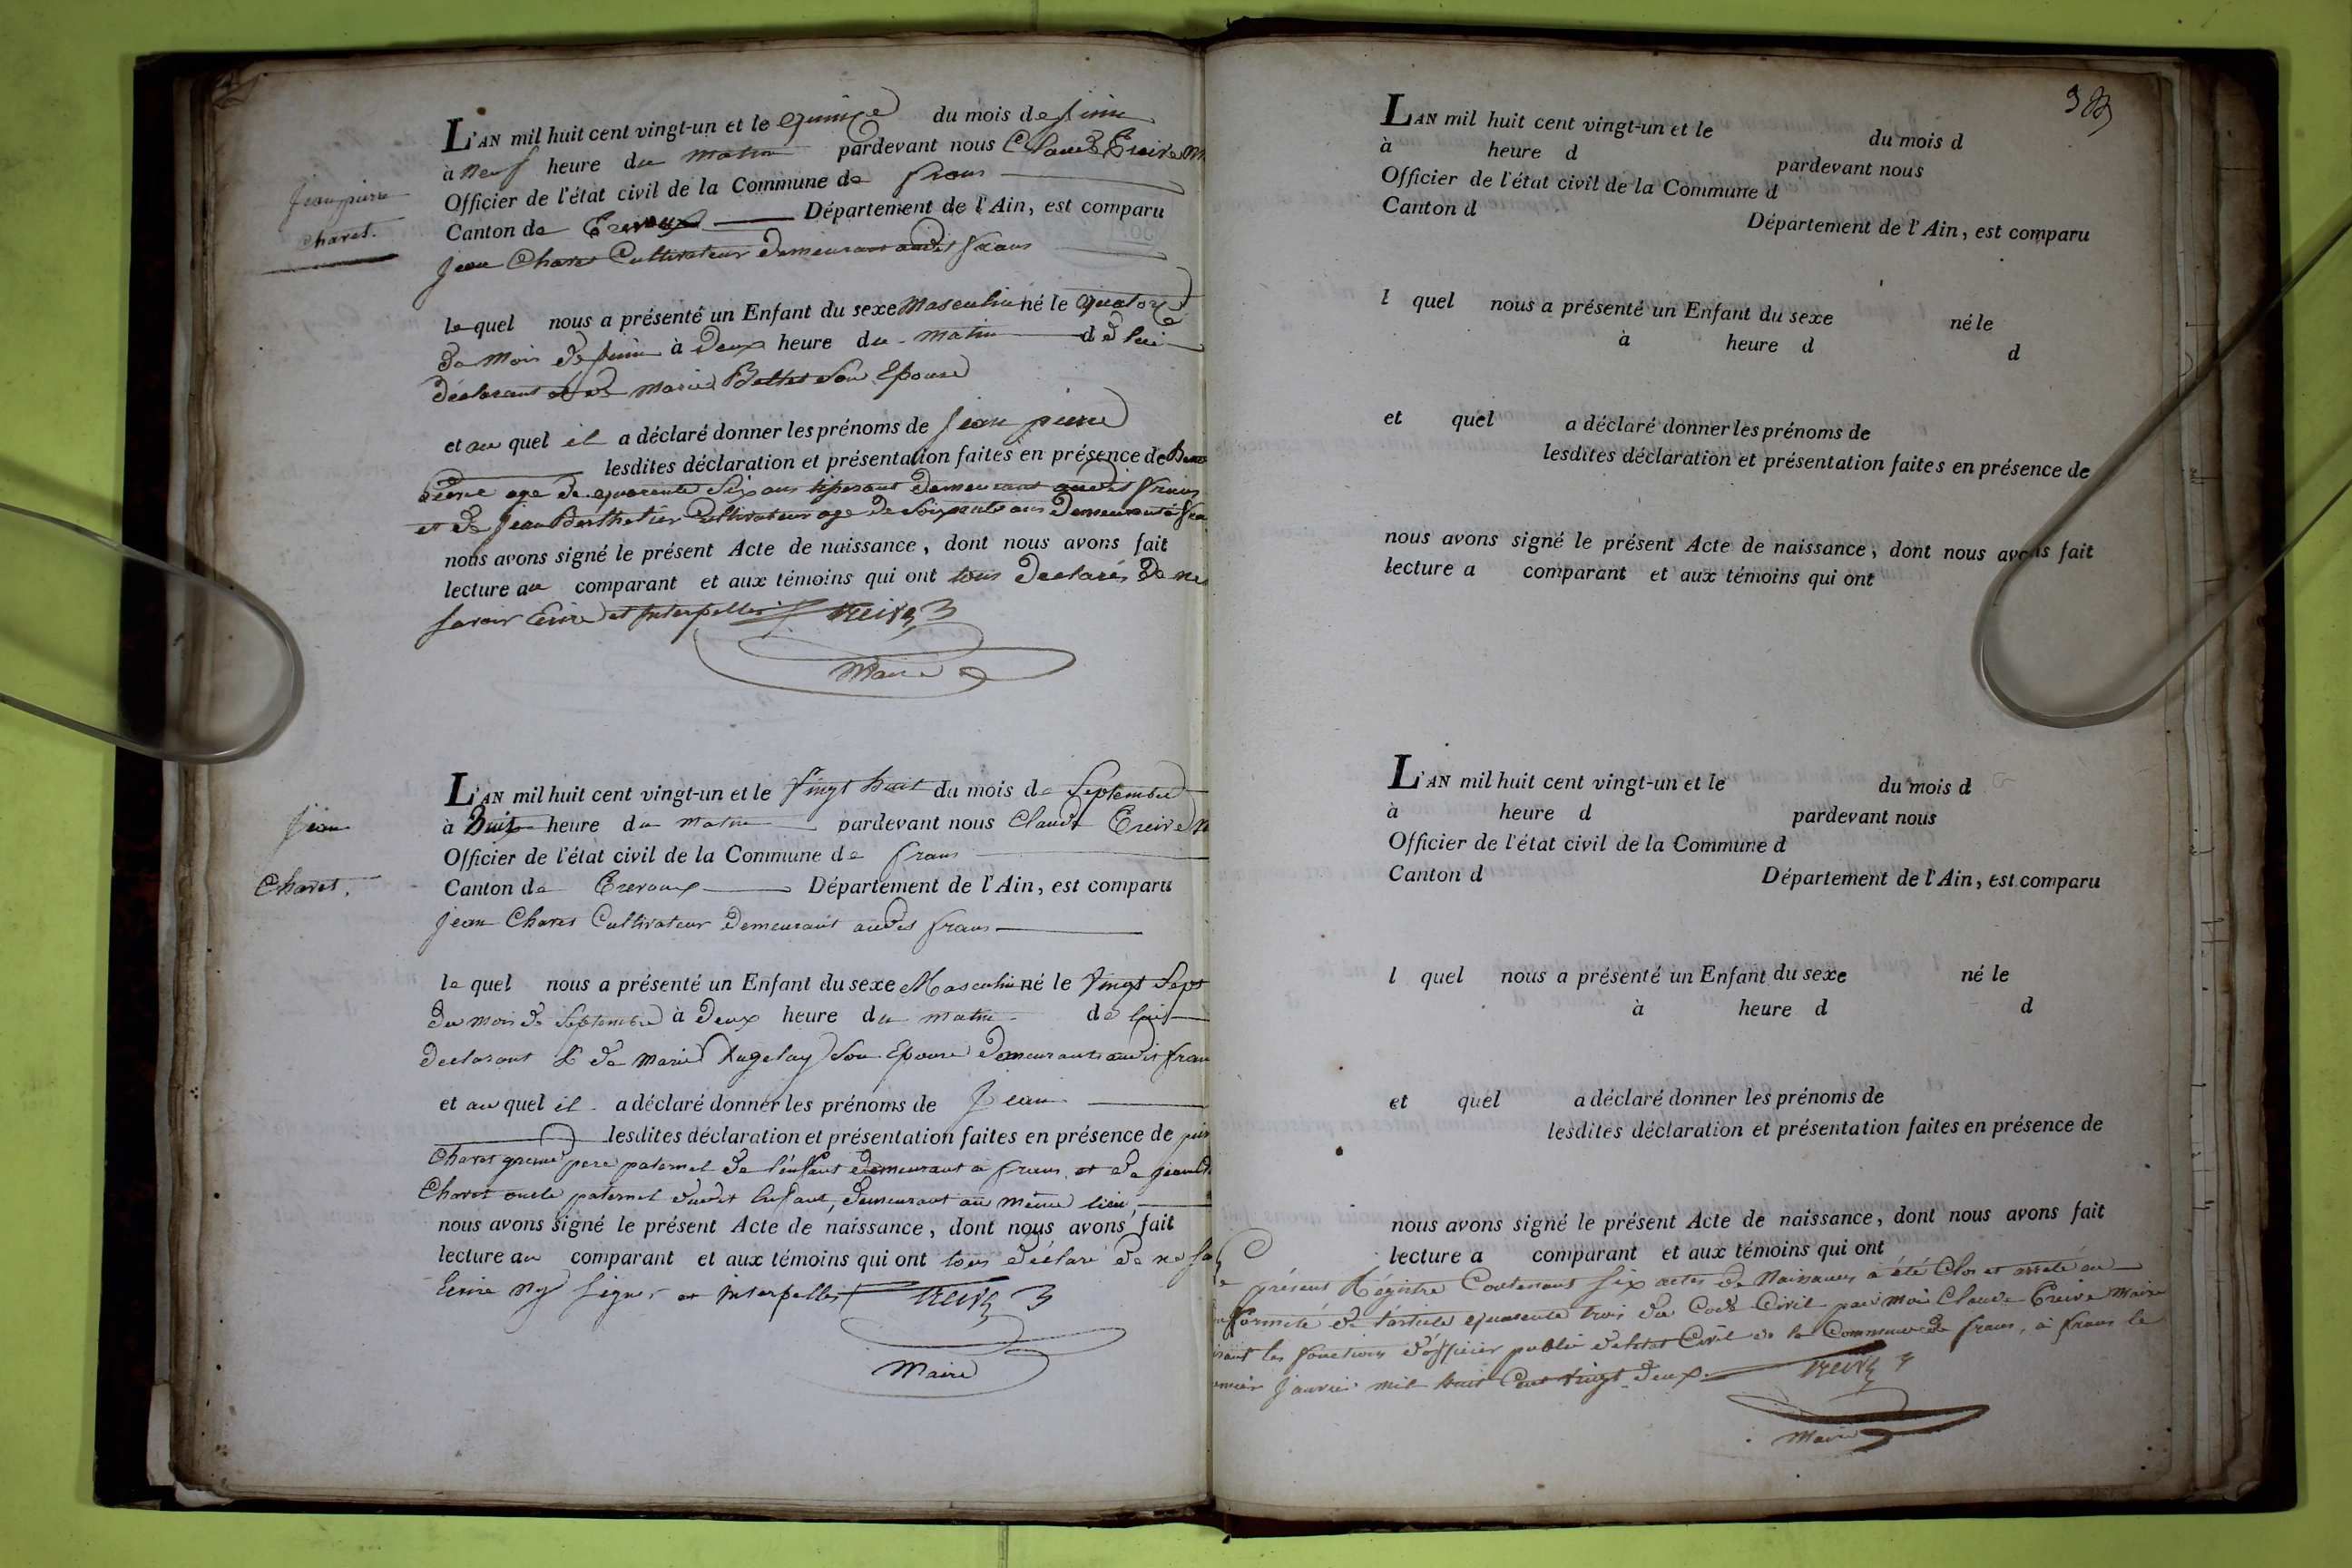 L'AN mil huit cent vingt-un et le quinze du mois de Juin
à neuf heure du matin pardevant nous Claude Treive M
Officier de l'état civil de la Commune de frans
Jean pierre
Charet.
Canton de Trevoux Département de l'Ain, est comparu
Jean Charet Cultivateur demeurant audit frans
le quel nous a présenté un Enfant du sexe Masculin né le quatorze
du mois de Juin à deux heure du matin de lui
déclarant et de Marie son Epouse
et au quel il a déclaré donner les prénoms de Jean pierre
lesdites déclaration et présentation faites en présence de
age de quarente Six ans tisserant demeurant audit frans
et de Jean Berthelier Cultivateur age de Soixante ans demeurant a
nous avons signé le présent Acte de naissance, dont nous avons fait
lecture au comparant et aux témoins qui ont tous declarés de ne
savoir Ecrire et Interpellés Treive
Maire
L'AN mil huit cent vingt-un et le Vingt huit du mois de Septembre
Jean
à huit heure du matin pardevant nous Claude Treive M
Officier de l'état civil de la Commune de frans
Charet.
Canton de Trevoux Département de l'Ain, est comparu
Jean Charet Cultivateur demeurant audit frans
le quel nous a présenté un Enfant du sexe Masculin né le Vingt Sept
du mois de Septembre à deux heure du matin de lui
declarant & de Marie son Epouse demeurant audit fran
et au quel il a déclaré donner les prénoms de Jean
lesdites déclaration et présentation faites en présence de
Charet grand pere paternel de l'enfant demeurant a frans et de
Charet oncle paternel dudit enfant, demeurant au même lieu,
nous avons signé le présent Acte de naissance, dont nous avons fait
lecture au comparant et aux témoins qui ont tous déclaré de ne sa
Ecrire Ny Signer et Interpellés Treive
Maire
L'AN mil huit cent vingt-un et le du mois d
à heure d pardevant nous
Officier de l'état civil de la Commune d
Canton d Département de l'Ain, est comparu
l quel nous a présenté un Enfant du sexe né le
à heure d d
et quel a déclaré donner les prénoms de
lesdites déclaration et présentation faites en présence de
nous avons signé le présent Acte de naissance, dont nous avons fait
lecture a comparant et aux témoins qui ont
L'AN mil huit cent vingt-un et le du mois d
à heure d pardevant nous
Officier de l'état civil de la Commune d
Canton d Département de l'Ain, est comparu
l quel nous a présenté un Enfant du sexe né le
à heure d d
et quel a déclaré donner les prénoms de
lesdites déclaration et présentation faites en présence de
nous avons signé le présent Acte de naissance, dont nous avons fait
lecture a comparant et aux témoins qui ont
présent Régistre Contenant Six actes de Naissances a été Clos et arrêté en
formité de l'article quarente trois du Code Civil par moi Claude Treive Maire
sant les fonctions d'officier public de l'état Civil de la Commune de frans, à frans le
Janvier mil huit Cent vingt deux Treive
Maire